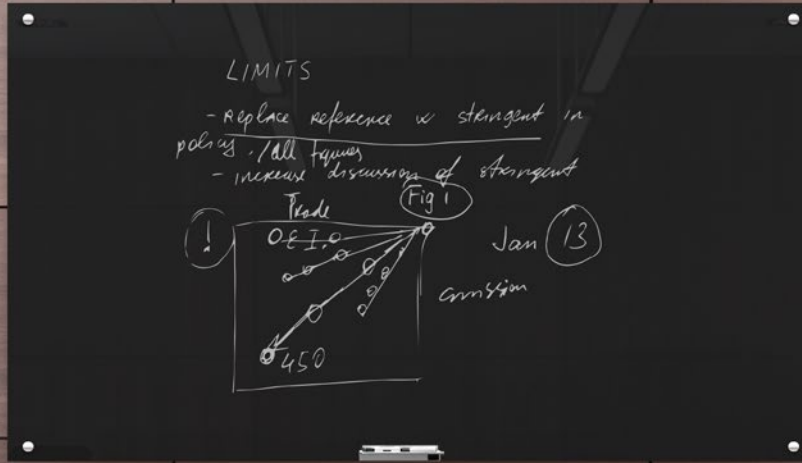 LIMITS
- Replace reference w stringent in
policy /all figures
- increase discussion of stringent
Fig 1
Trade
!
O E I.
Jan 13
emission
450